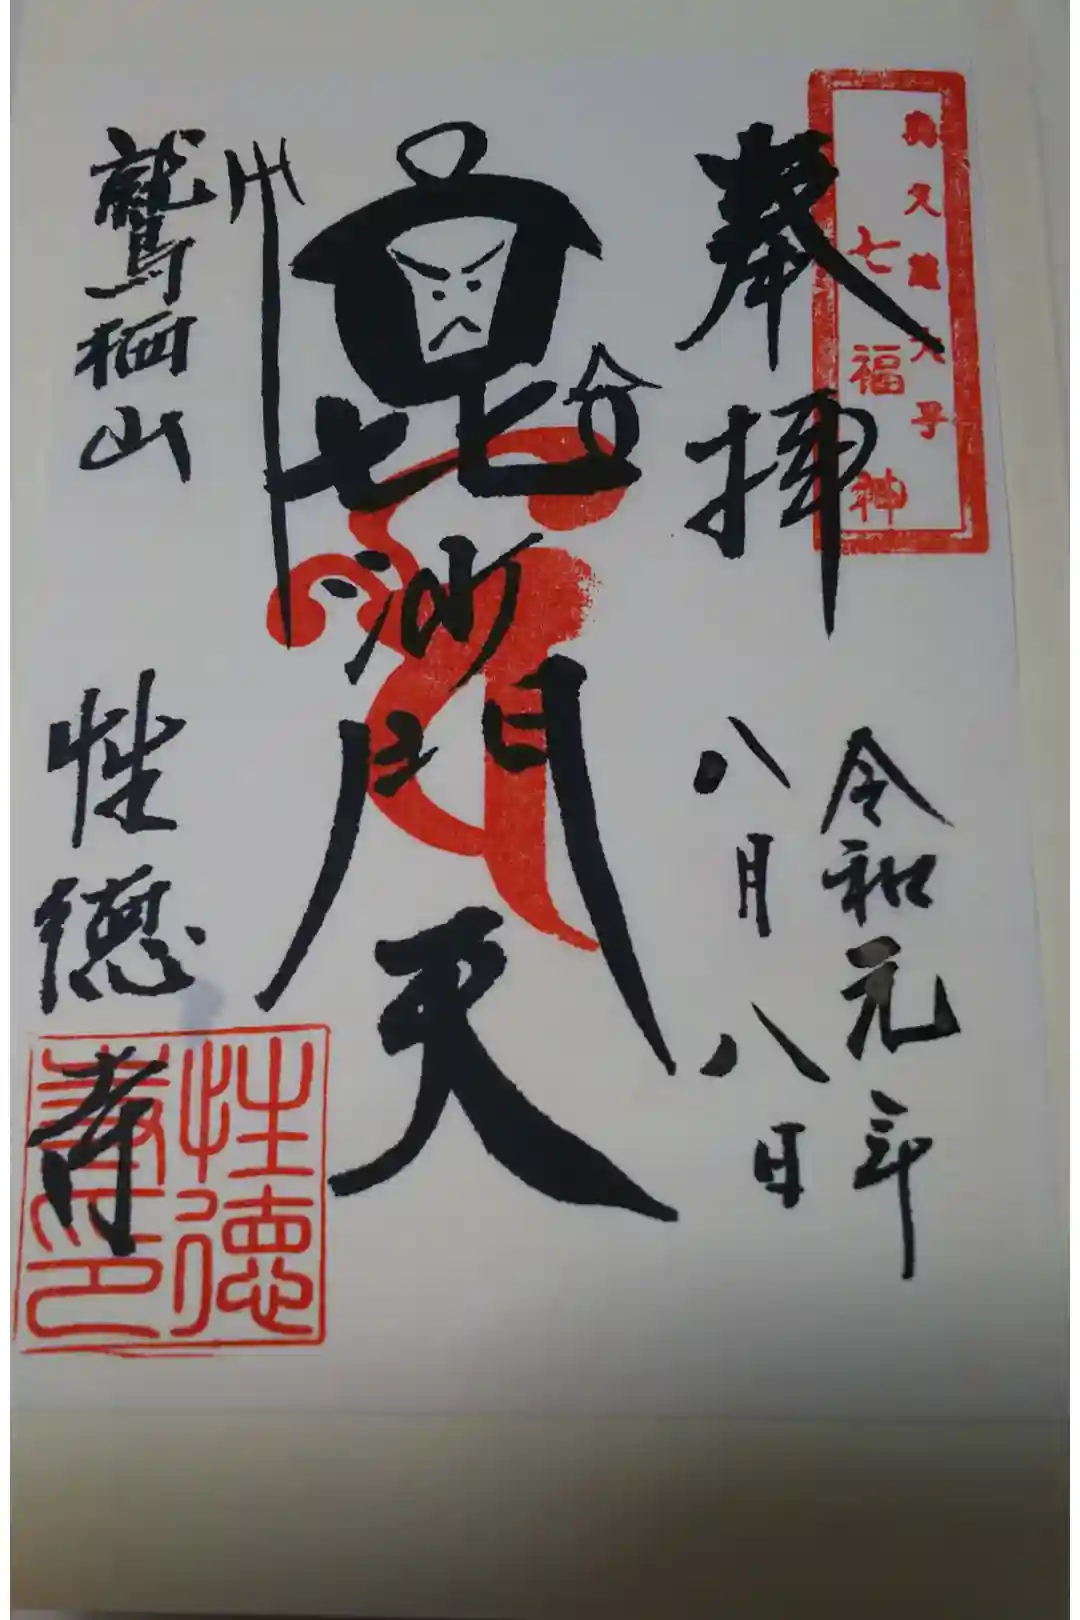 奥久慈大子
七福神
奉拝
令和元年
八月八日
毘沙門天
鷲栖山
性徳寺
性徳
寺印